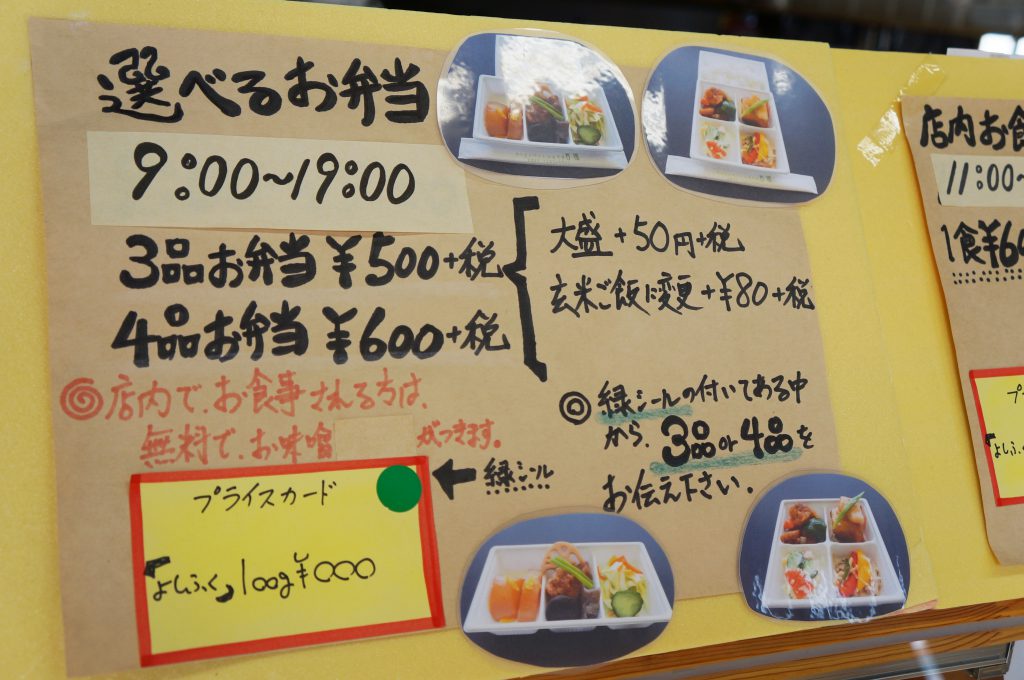 選べるお弁当
9:00~19:00
3品お弁当 ¥500+税
4品お弁当 ¥600+税
大盛 +50円+税
玄米ご飯に変更 +¥80+税
◎店内で、お食事される方は、
無料で、お味噌 がつきます。
◎緑シールの付いてある中
から、3品or4品を
お伝え下さい。
←緑シール
プライスカード
100g¥000
店内お食
11:00~
1食¥60